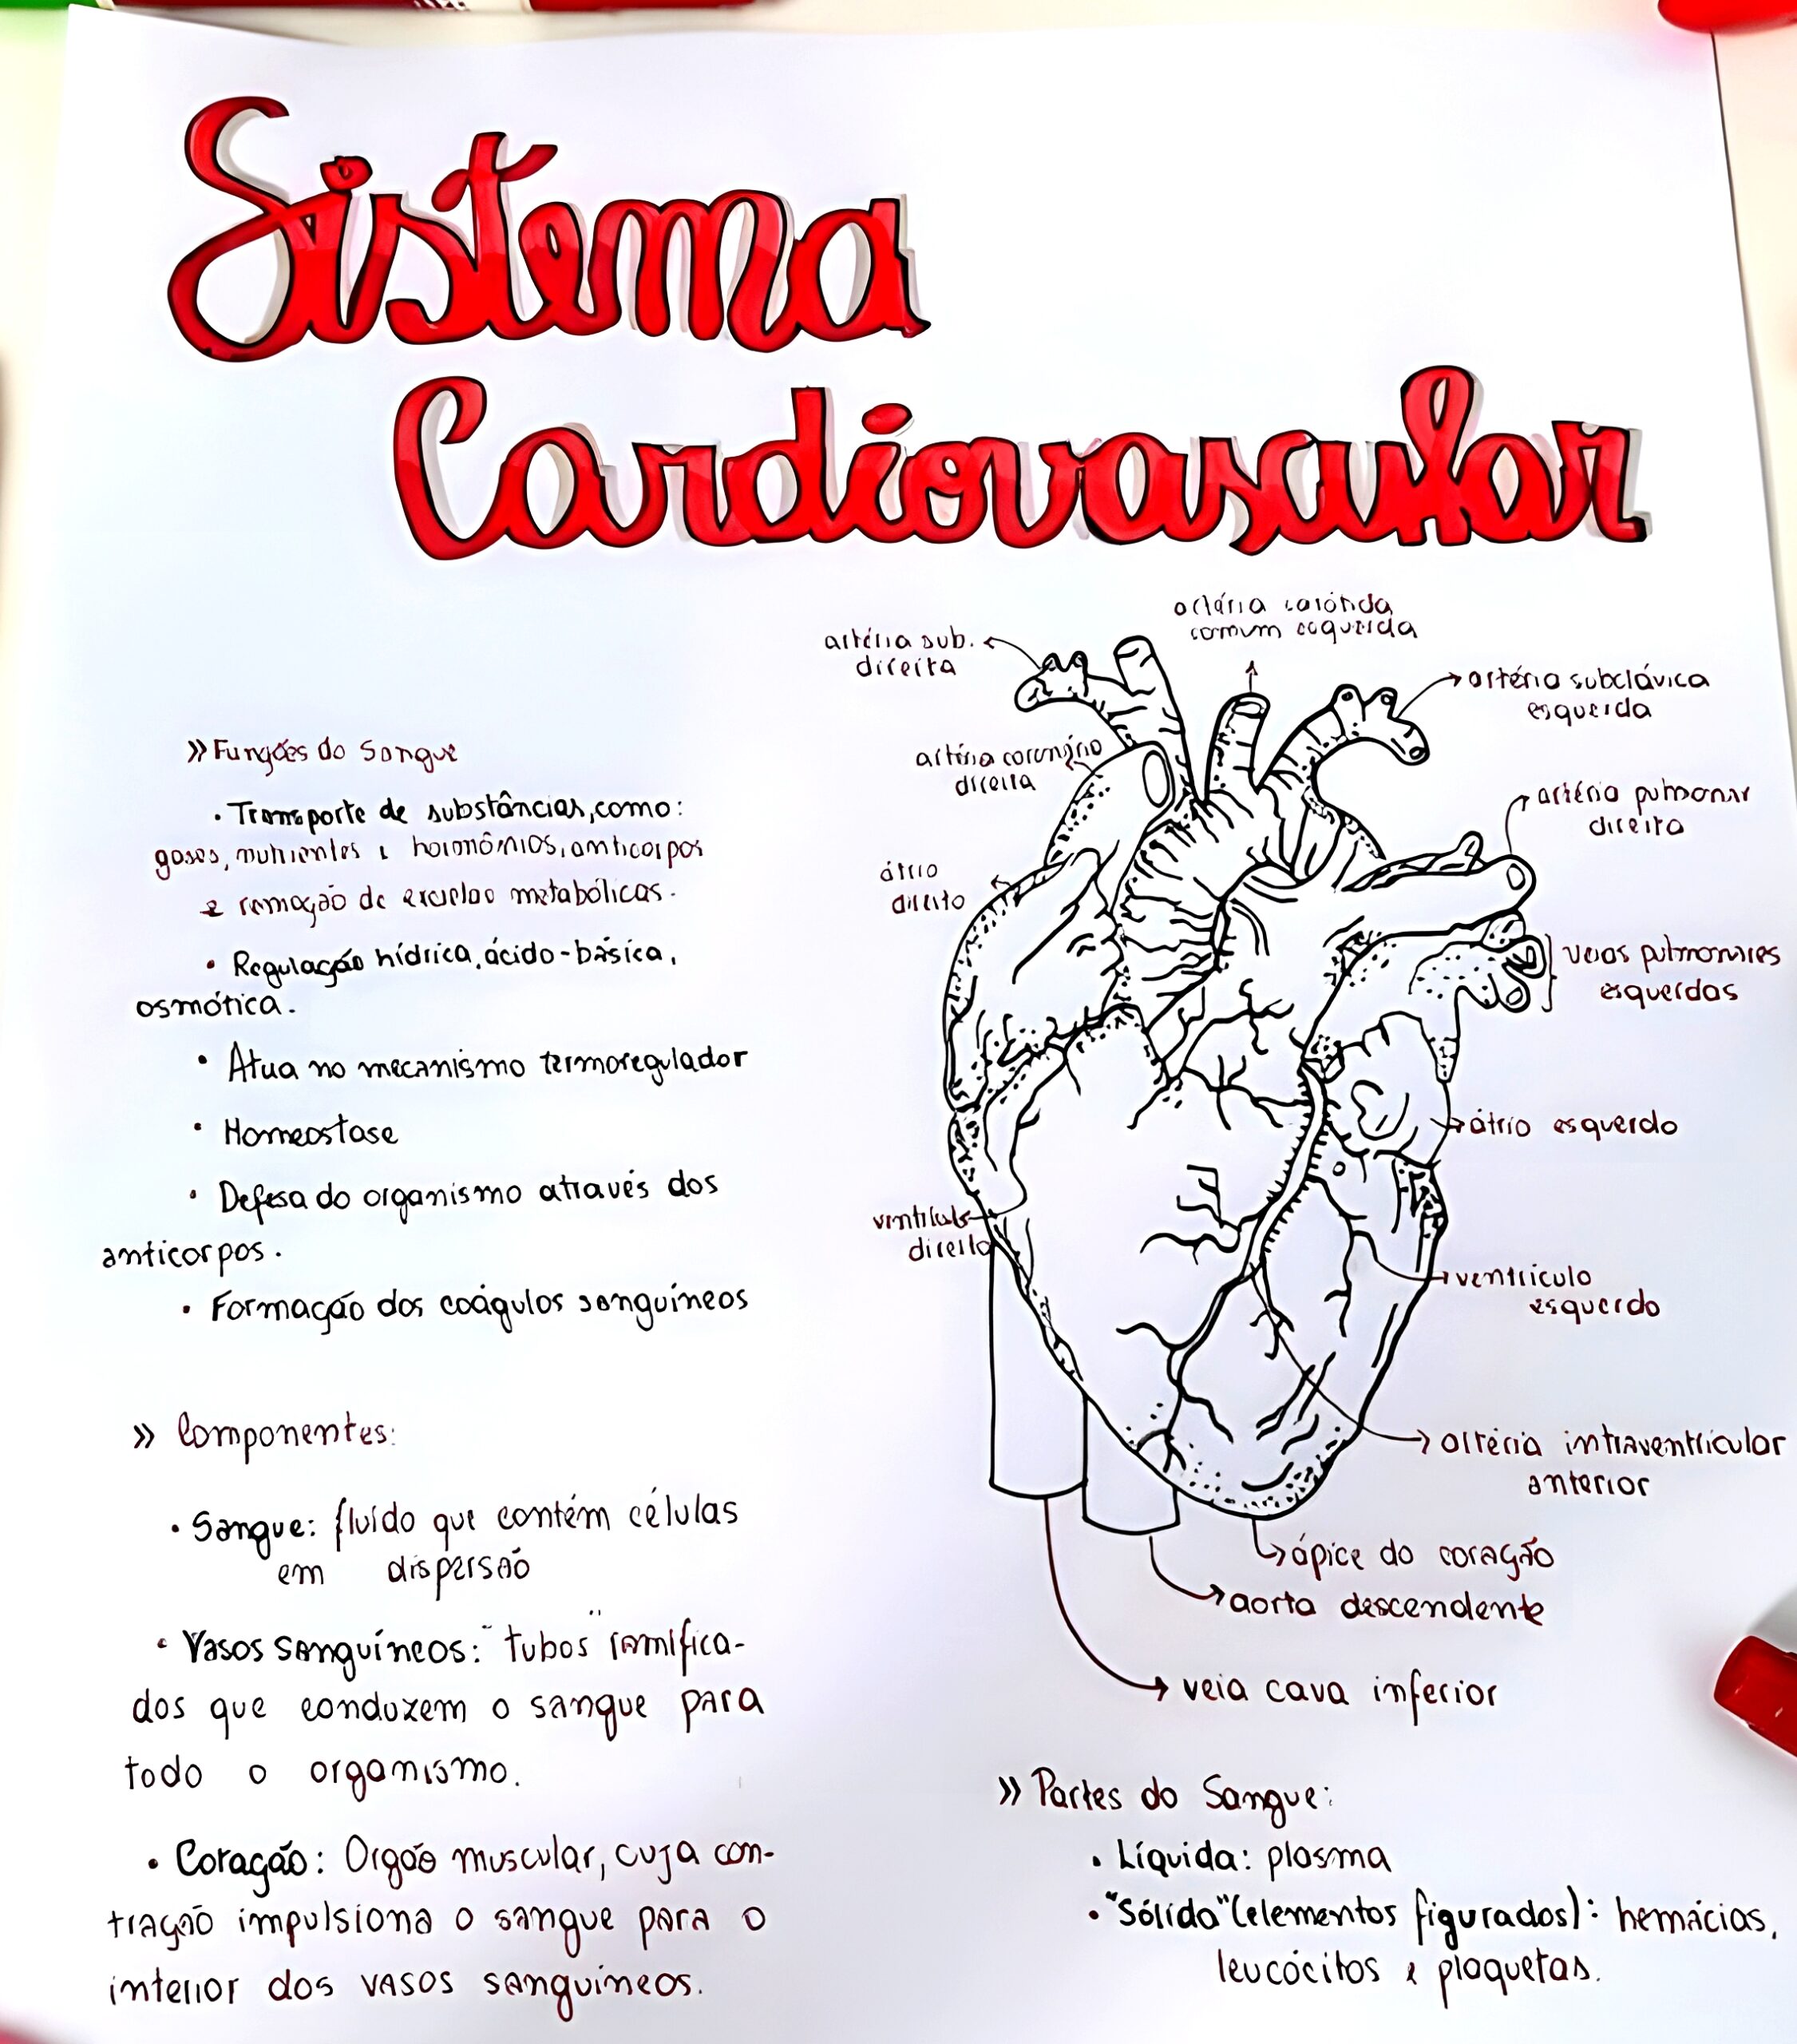 Sistema
Cardiovascular
» Funções do Sangue
• Transporte de substâncias, como:
gases, nutrientes e hormônios, anticorpos
e remoção de excretas metabólicas.
• Regulação hídrica, ácido-básica,
osmótica.
• Atua no mecanismo termoregulador
• Homeostase
• Defesa do organismo através dos
anticorpos.
• Formação dos coágulos sanguíneos
» Componentes:
• Sangue: fluído que contém células
em dispersão
• Vasos sanguíneos: "tubos" ramifica-
dos que conduzem o sangue para
todo o organismo.
• Coração: Orgão muscular, cuja con-
tração impulsiona o sangue para o
interior dos vasos sanguíneos.
artéria sub.
direita
artéria carótida
comum esquerda
artéria subclávica
esquerda
artéria coronário
direita
artéria pulmonar
direita
átrio
direito
veias pulmonares
esquerdas
átrio esquerdo
ventriculo
direito
ventrículo
esquerdo
artéria intraventricular
anterior
ápice do coração
aorta descendente
veia cava inferior
» Partes do Sangue:
• Líquida: plasma
• "Sólida" (elementos figurados): hemácias,
leucócitos e plaquetas.